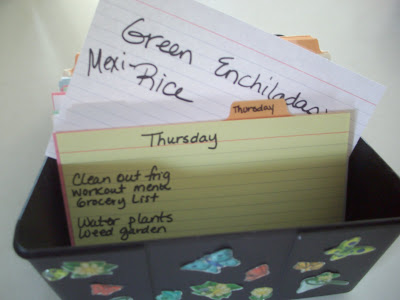 Green Enchiladas
Mexi-Rice
Thursday
Thursday
Clean out frig
workout menu
Grocery List
Water plants
Weed garden